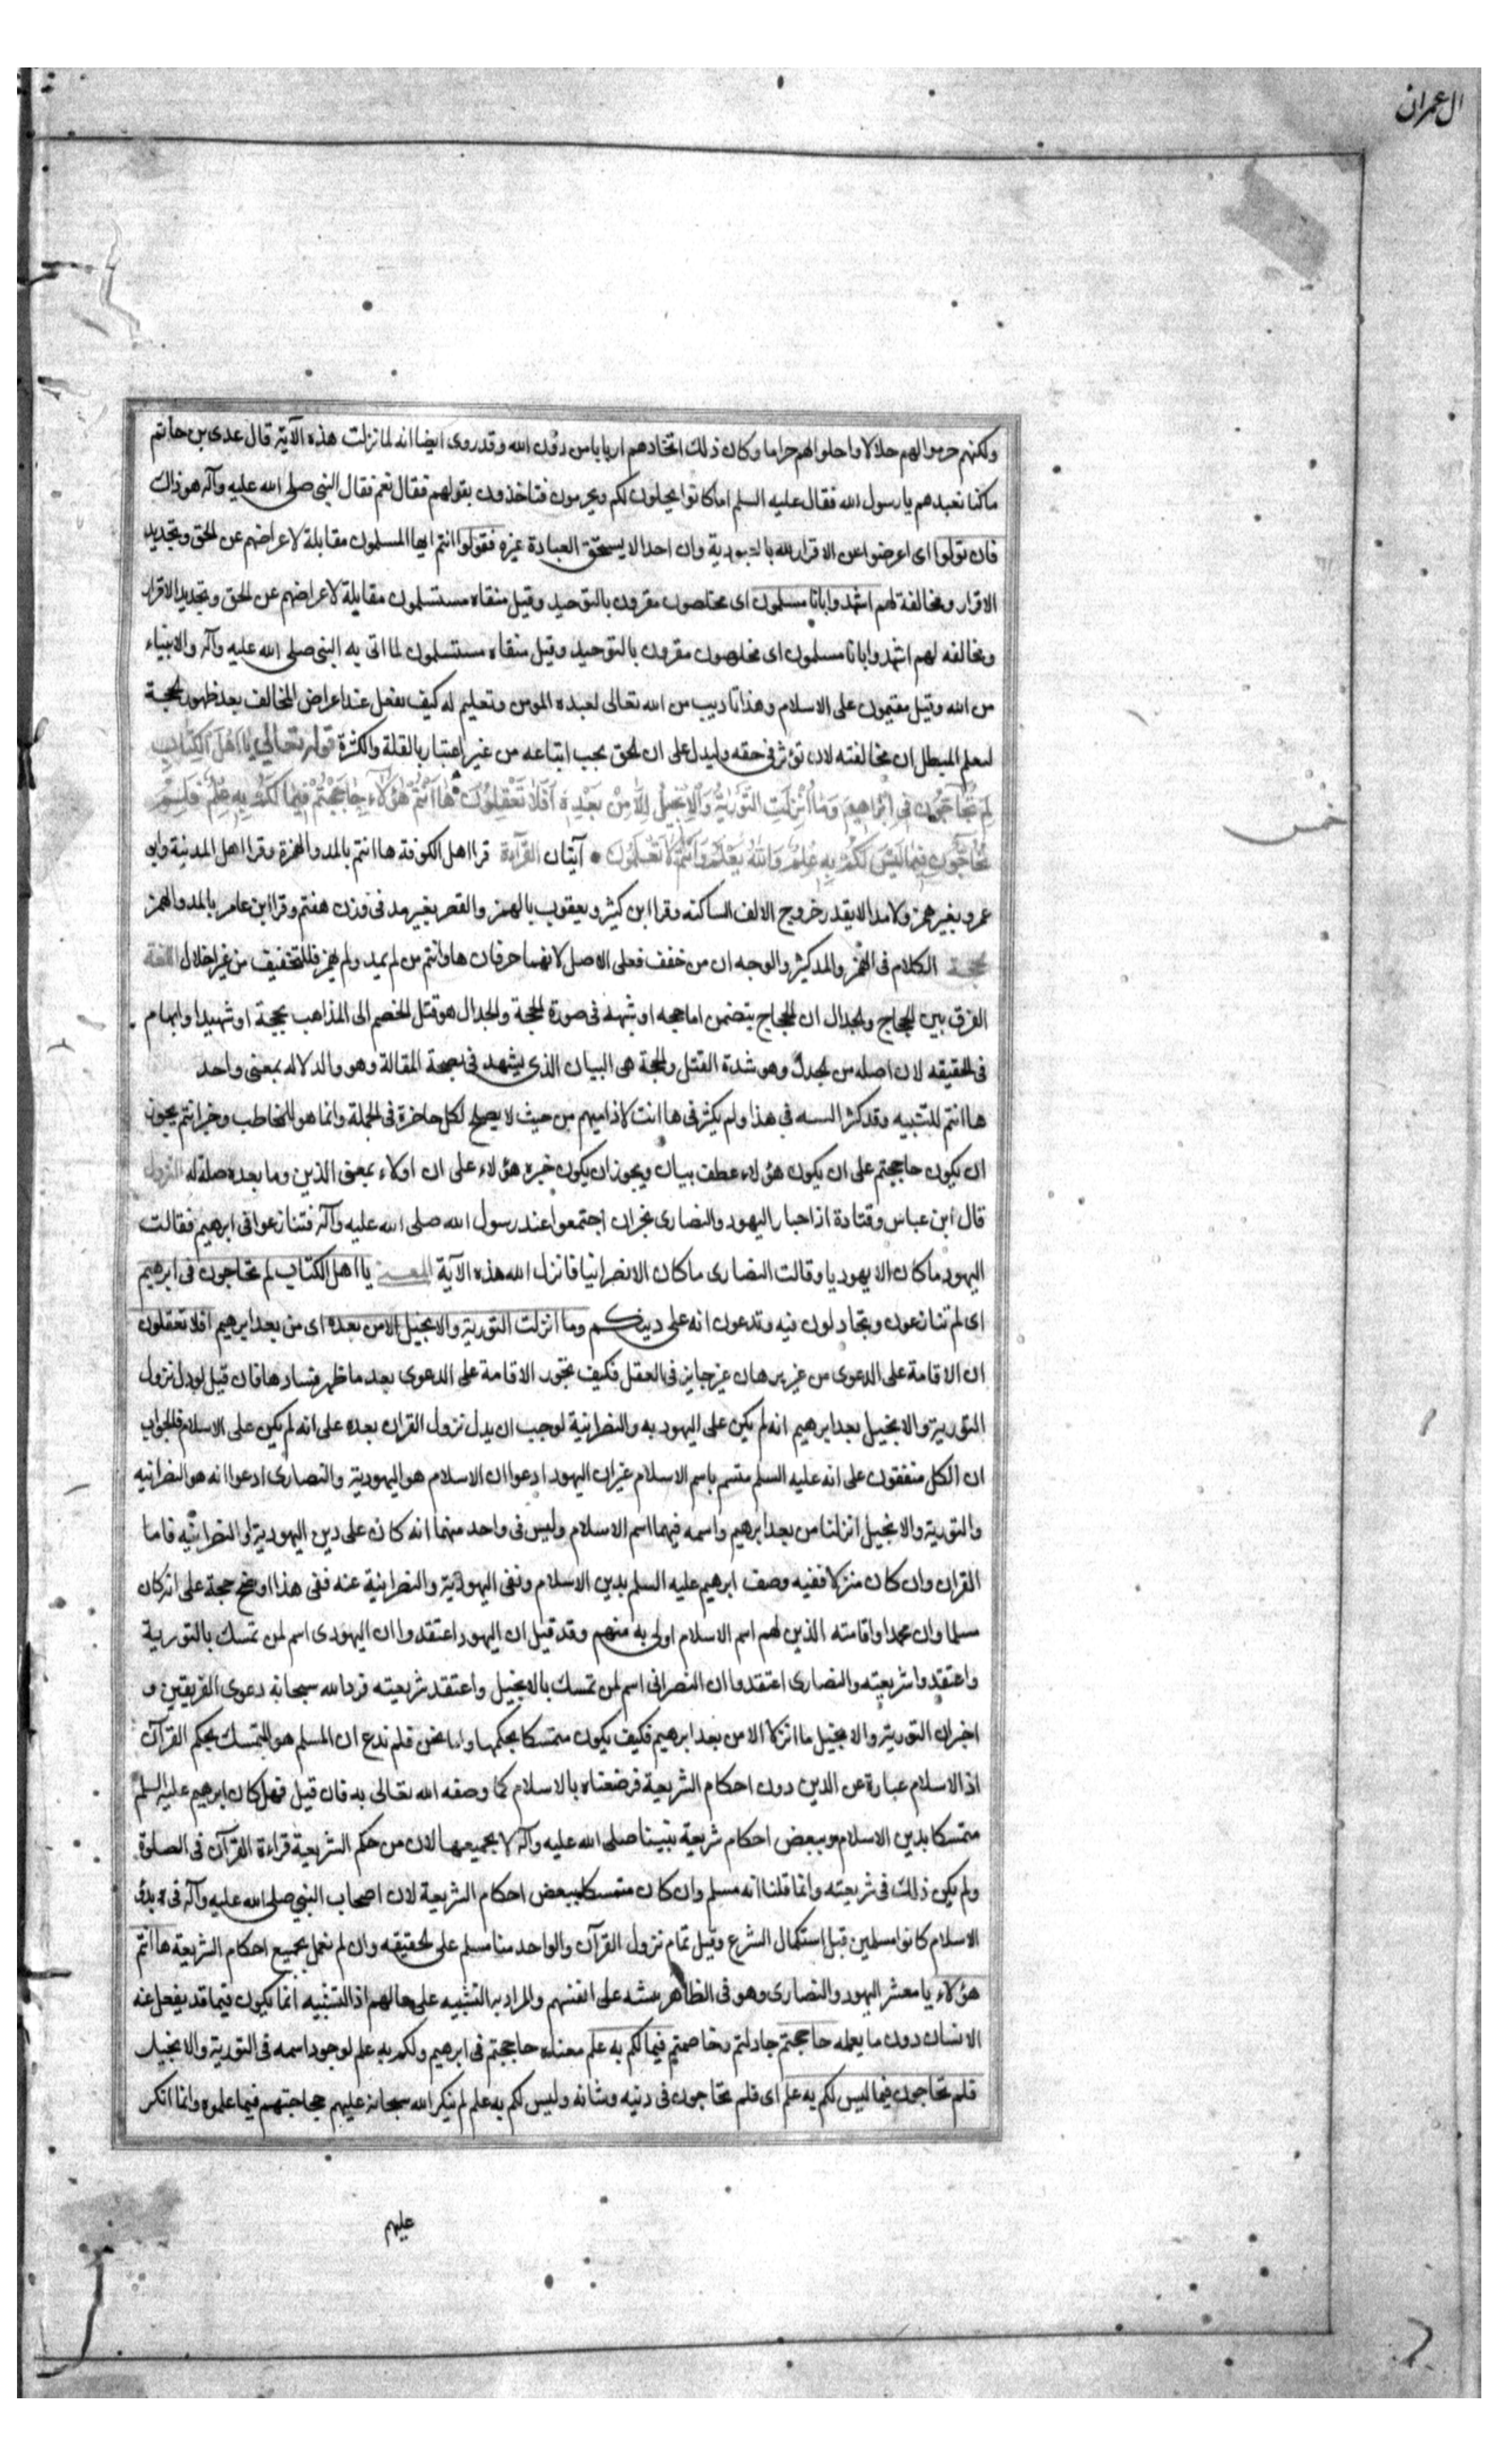 ال عمران
ولكنهم حرموا لهم حلالا واحلوا لهم حراما وكان ذلك اتخاذهم اربابا من دون الله وقد روى ايضا انه لما نزلت هذه الآية قال عدى بن حاتم
ماكنا نعبدهم يا رسول الله فقال عليه السلم اما كانوا يحلون لكم ويحرمون فتاخذون بقولهم فقال نعم فقال النبى صلى الله عليه وآله هو ذاك
فان تولوا اى اعرضوا عن الاقرار لله بالعبودية وان احدا لا يستحق العبادة غيره فقولوا انتم ايها المسلمون مقابلة لاعراضهم عن الحق وتجديد
الاقرار ومخالفة لهم اشهدوا بانا مسلمون اى مخلصون مقرون بالتوحيد وقيل منقاه مستسلمون مقابلة لاعراضهم عن الحق وتجديد الاقرار
ومخالفه لهم اشهدوا بانا مسلمون اى مخلصون مقرون بالتوحيد وقيل منقاه مستسلمون لما اتى به النبى صلى الله عليه وآله والانبياء
من الله وقيل مقيمون على الاسلام وهذا تاديب من الله تعالى لعبده المومن وتعليم له كيف يفعل عند اعراض المخالف بعد ظهور الحجة
ليعلم المبطل ان مخالفته لا تؤثر فى حقه وليدل على ان الحق يجب اتباعه من غير اعتبار بالقلة والكثرة قوله تعالى يا اهل الكتاب
لم تحاجون فى ابراهيم وما انزلت التورية والانجيل الا من بعده افلا تعقلون ها انتم هؤلاء حاججتم فيما لكم به علم فلم
خمس
تحاجون فيما ليس لكم به علم والله يعلم وانتم لا تعلمون آيتان القرآءة قرا اهل الكوفة ها انتم بالمد والهمزة وقرا اهل المدينة وابو
عمرو بغير همز ولا مد الا بقدر خروج الالف الساكنه وقرا ابن كثير ويعقوب بالهمز والقصر بغير مد فى وزن هعنتم وقرا ابن عامر بالمد والهمز
الحجة الكلام فى الهمز والمد كثير والوجه ان من خفف فعلى الاصل لانهما حرفان ها وانتم من لم يمد ولم يهمز فللتخفيف من غير اخلال اللغة
الفرق بين الحجاج والجدال ان الحجاج يتضمن اما حجه او شبهة فى صورة الحجة والجدال هو فتل الخصم الى المذاهب بحجة او شهيدا وابهام
فى الحقيقه لان اصله من الجدل وهو شدة الفتل والحجة هى البيان الذى يشهد فى بصحة المقالة وهو والدلاله بمعنى واحد
ها انتم للتنبيه وقد كثر السه فى هذا ولم يكثر فى ها انت لاذاميهم من حيث لا يصلح لكل حاضرة فى الجملة وانما هو للمخاطب وخبر انتم يجوز
ان يكون حاججتم على ان يكون هؤلاء عطف بيان ويجوز ان يكون خبره هؤلاء على ان اولاء بمعنى الذين وما بعده صلة له النزول
قال ابن عباس وقتادة اذ احبار اليهود والنصارى نجران اجتمعوا عند رسول الله صلى الله عليه وآله فتنازعوا فى ابرهيم فقالت
اليهود ماكان الا يهوديا وقالت النصارى ماكان الا نصرانيا فانزل الله هذه الآية المعنى يا اهل الكتاب لم تحاجون فى ابرهيم
اى لم تنازعون وتجادلون فيه وتدعون انه على دينكم وما انزلت التورية والانجيل الا من بعده اى من بعد ابرهيم افلا تعقلون
ان الاقامة على الدعوى من غير برهان غير جايز فى العقل فكيف يجوز الاقامة على الدعوى بعد ما ظهر فسادها فان قيل لو دل نزول
التورية والانجيل بعد ابرهيم انه لم يكن على اليهوديه والنصرانية لوجب ان يدل نزول القران بعده على انه لم يكن على الاسلام فالجواب
ان الكل متفقون على انه عليه السلم متسم باسم الاسلام غير ان اليهود ادعوا ان الاسلام هو اليهودية والنصارى ادعوا انه هو النصرانيه
والتورية والانجيل انزلنا من بعد ابرهيم واسمه فيهما اسم الاسلام وليس فى واحد منهما انه كان على دين اليهودية او النصرانيه فاما
القران وان كان منزلا ففيه وصف ابرهيم عليه السلم بدين الاسلام ونفى اليهودية والنصرانية عنه ففى هذا اوضح حجة على انه كان
مسلما وان محمدا واقامته الذين لهم اسم الاسلام اولى به منهم وقد قيل ان اليهود اعتقدوا ان اليهودى اسم لمن تمسك بالتورية
واعتقدوا شريعته والنصارى اعتقدوا ان النصرانى اسم لمن تمسك بالانجيل واعتقد شريعته فرد الله سبحانه دعوى الفريقين و
اخبر ان التورية والانجيل ما انزلا الا من بعد ابرهيم فكيف يكون متمسكا بحكمها واما نحن فلم ندع ان المسلم هو المتمسك بحكم القرآن
اذ الاسلام عبارة عن الدين دون احكام الشريعة فوضعناه بالاسلام كما وصفه الله تعالى به فان قيل فهل كان ابرهيم عليه السلم
متمسكا بدين الاسلام وببعض احكام شريعة نبينا صلى الله عليه وآله لا بجميعها لان من حكم الشريعة قراءة القرآن فى الصلوة
ولم يكن ذلك فى شريعته وانما قلنا انه مسلم وان كان متمسكا ببعض احكام الشريعة لان اصحاب النبى صلى الله عليه وآله فى بدئ
الاسلام كانوا مسلمين قبل استكمال الشرع وقبل تمام نزول القرآن والواحد منا مسلم على الحقيقه وان لم نعمل بجميع احكام الشريعة ها انتم
هؤلاء يا معشر اليهود والنصارى وهو فى الظاهر تنبيه على انفسهم والمراد به التنبيه على حالهم اذ التنبيه انما يكون فيما قد يغفل عنه
الانسان دون ما يعلمه حاججتم جادلتم وخاصمتم فيما لكم به علم معناه حاججتم فى ابرهيم ولكم به علم لوجود اسمه فى التورية والانجيل
فلم تحاجون فيما ليس لكم به علم اى فلم تحاجون فى دينه وشانه وليس لكم به علم لم ينكر الله سبحانه عليهم محاجتهم فيما علموه وانما انكر
عليهم